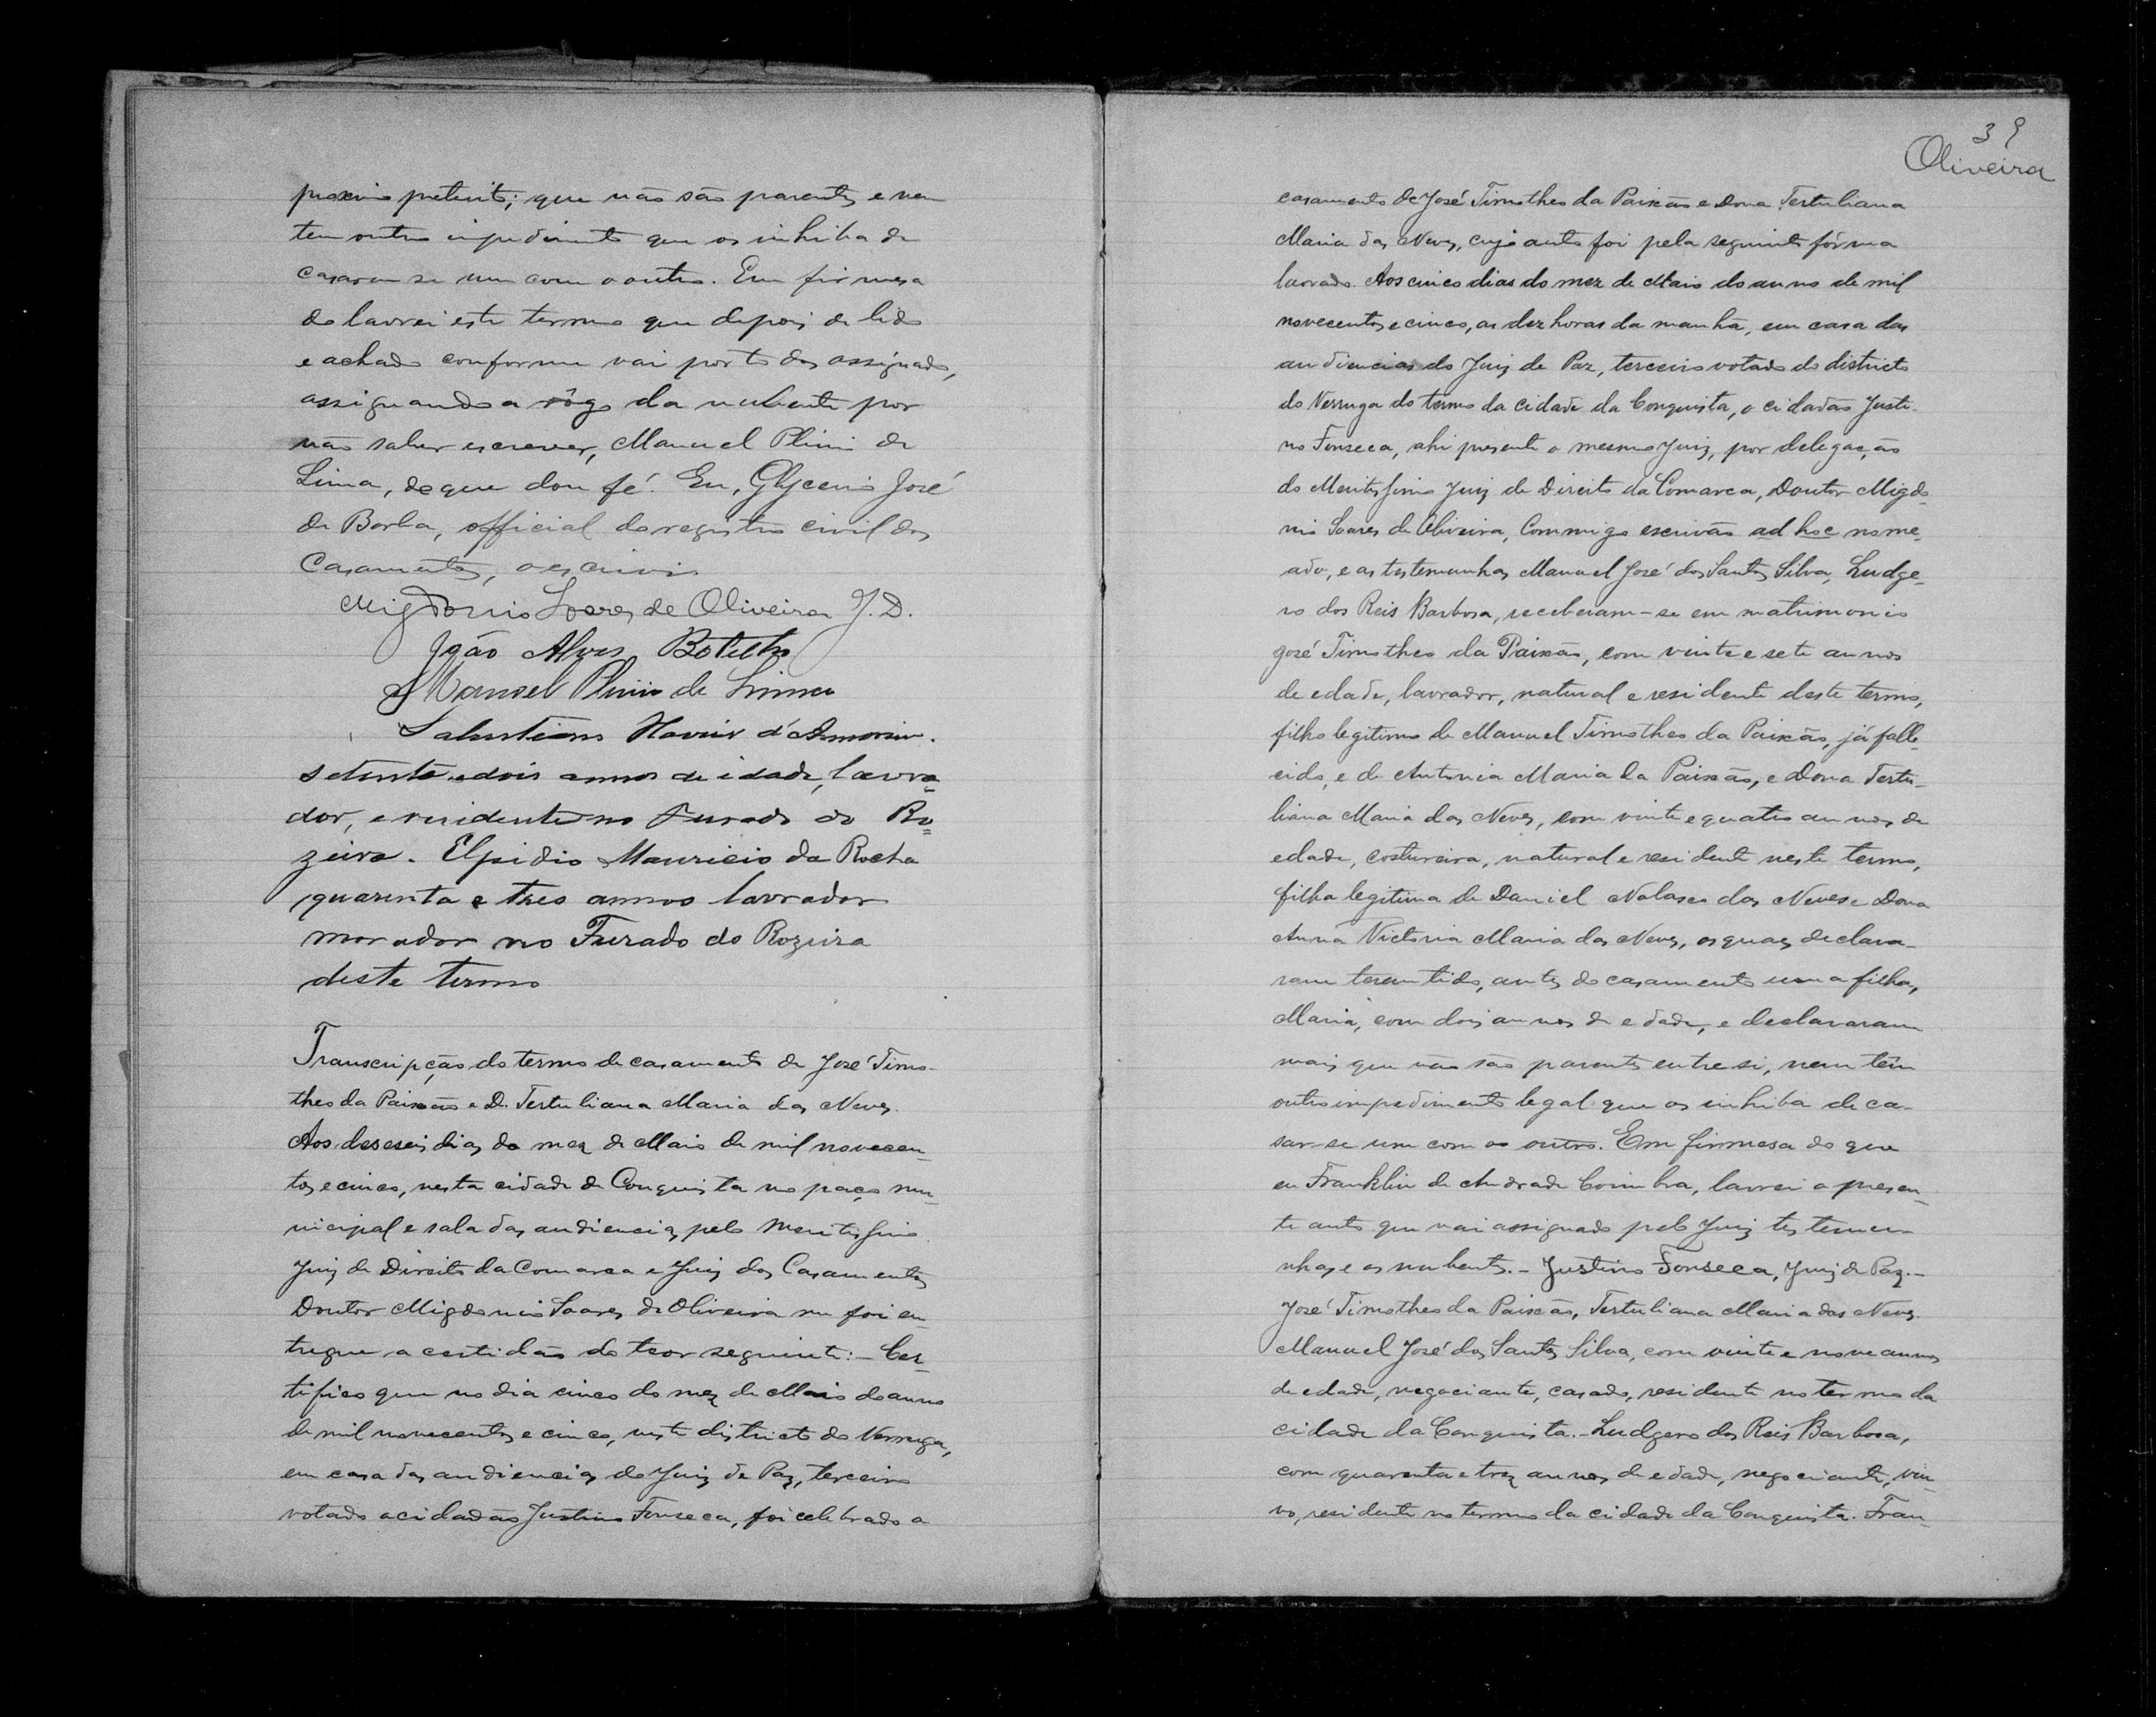 proximo preterito; que não são parentes e nem
tem outro impedimento que os inhiba de
casarem se um com o outro. Em firmesa
do lavrei este termo que depois de lido
e achado conforme vai por todos assignado,
assignando a rôgo da nubente por
não saber escrever, Manuel Plinio de
Lima, de que dou fé. Eu, Glycerio José
de Borba, official do registro civil dos
Casamentos, o escrivi.
Migdonio Soares de Oliveira J. D.
João Alves Botelho
Manoel Plinio de Lima
Xavier d'Amorim.
setenta e dois annos de idade, lavra-
dor, e residente no Furado do Ro-
zeira. Elpidio Mauricio da Rocha
quarenta e tres annos lavrador
morador no Furado do Rozeira
deste termo
Transcripção do termo de casamento de José Timo-
theo da Paixão e D. Tertuliana Maria das Neves.
Aos deseseis dias do mez de Maio de mil novecen-
tos e cinco, nesta cidade de Conquista no paço mu-
nicipal e sala das audiencias, pelo Meritissimo
Juiz de Direito da Comarca e Juiz dos Casamentos
Doutor Migdonio Soares de Oliveira me foi en-
tregue a certidão do teor seguinte: - Cer-
tifico que no dia cinco do mez de Maio do anno
de mil novecentos e cinco, neste districto do Verruga,
em casa das audiencias do Juiz de Paz, terceiro
votado o cidadão Justino Fonseca, foi celebrado o
39
Oliveira
casamento de José Timotheo da Paixão e Dona Tertuliana
Maria das Neves, cujo auto foi pela seguinte fórma
lavrado. Aos cinco dias do mez de Maio do anno de mil
novecentos e cinco, as dez horas da manhã, em casa das
audiencias do Juiz de Paz, terceiro votado do districto
do Verruga do termo da cidade da Conquista, o cidadão Justi-
no Fonseca, ahi presente o mesmo Juiz, por delegação
do Meritissimo Juiz de Direito da Comarca, Doutor Migdo-
nio Soares de Oliveira, Commigo escrivão ad hoc nome-
ado, e as testemunhas Manuel José dos Santos Silva, Ludge-
ro dos Reis Barbosa, receberam-se em matrimonio
José Timotheo da Paixão, com vinte e sete annos
de edade, lavrador, natural e residente deste termo,
filho legitimo de Manuel Timotheo da Paixão, já falle-
cido, e de Antonia Maria da Paixão, e Dona Tertu-
liana Maria das Neves, com vinte e quatro annos de
edade, costureira, natural e residente neste termo,
filha legitima de Daniel Nolasco das Neves e Dona
Anna Victoria Maria das Neves, os quaes declara-
ram terem tido, antes do casamento uma filha,
Maria, com dois annos de edade, e declararam
mais que não são parentes entre si, nem têm
outro impedimento legal que os inhiba de ca-
sar-se um com o outro. Em firmesa do que
eu Franklin de Andrade Coimbra, lavrei o presen-
te auto que vai assignado pelo Juiz testemu-
nhas e os nubentes. - Justino Fonseca, Juiz de Paz. -
José Timotheo da Paixão, Tertuliana Maria das Neves.
Manuel José dos Santos Silva, com vinte e nove annos
de edade, negociante, casado, residente no termo da
cidade da Conquista. - Ludgero dos Reis Barbosa,
com quarenta e trez annos de edade, negociante, viu-
vo, residente no termo da cidade da Conquista. Fran-